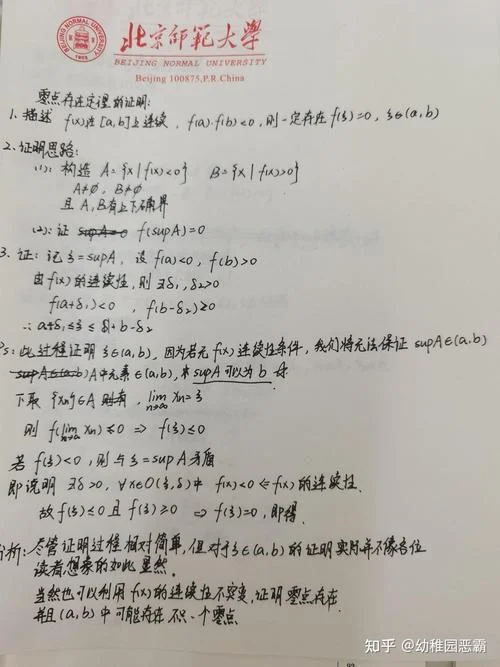 北京师范大学
BEIJING NORMAL UNIVERSITY
Beijing 100875,P.R.China
零点存在定理的证明:
1. 描述 f(x)在[a,b]上连续, f(a)·f(b)<0, 则一定存在f(ξ)=0, ξ∈(a,b)
2. 证明思路:
(1): 构造 A={x|f(x)<0} B={x|f(x)>0}
A≠∅, B≠∅
且 A,B有上下确界
(2): 证 f(supA)=0
3. 证: 记 ξ=supA, 设 f(a)<0, f(b)>0
由f(x)的连续性, 则 ∃δ₁,δ₂>0
f(a+δ₁)<0, f(b-δ₂)≥0
∴ a+δ₁≤ξ≤ b-δ₂
Ps: 此过程证明 ξ∈(a,b), 因为若无f(x)连续性条件, 我们将无法保证 supA∈(a,b)
supA∈(a,b) A中元素∈(a,b), supA可以为b
下取 {xn}∈A 则有, lim n→∞ xn=ξ
则 f(lim n→∞ xn)≤0 ⇒ f(ξ)≤0
若 f(ξ)<0, 则与ξ=supA矛盾
即说明 ∃δ>0, ∀x∈O(ξ,δ)中 f(x)<0 ⇐ f(x)的连续性.
故f(ξ)≤0 且 f(ξ)≥0 ⇒ f(ξ)=0, 即得.
分析: 尽管证明过程相对简单, 但对于ξ∈(a,b)的证明实际并不像各位
读者想象的如此显然.
当然也可以利用f(x)的连续性不变, 证明零点存在
并且(a,b)中可能存在不只一个零点
知乎 @幼稚园恶霸